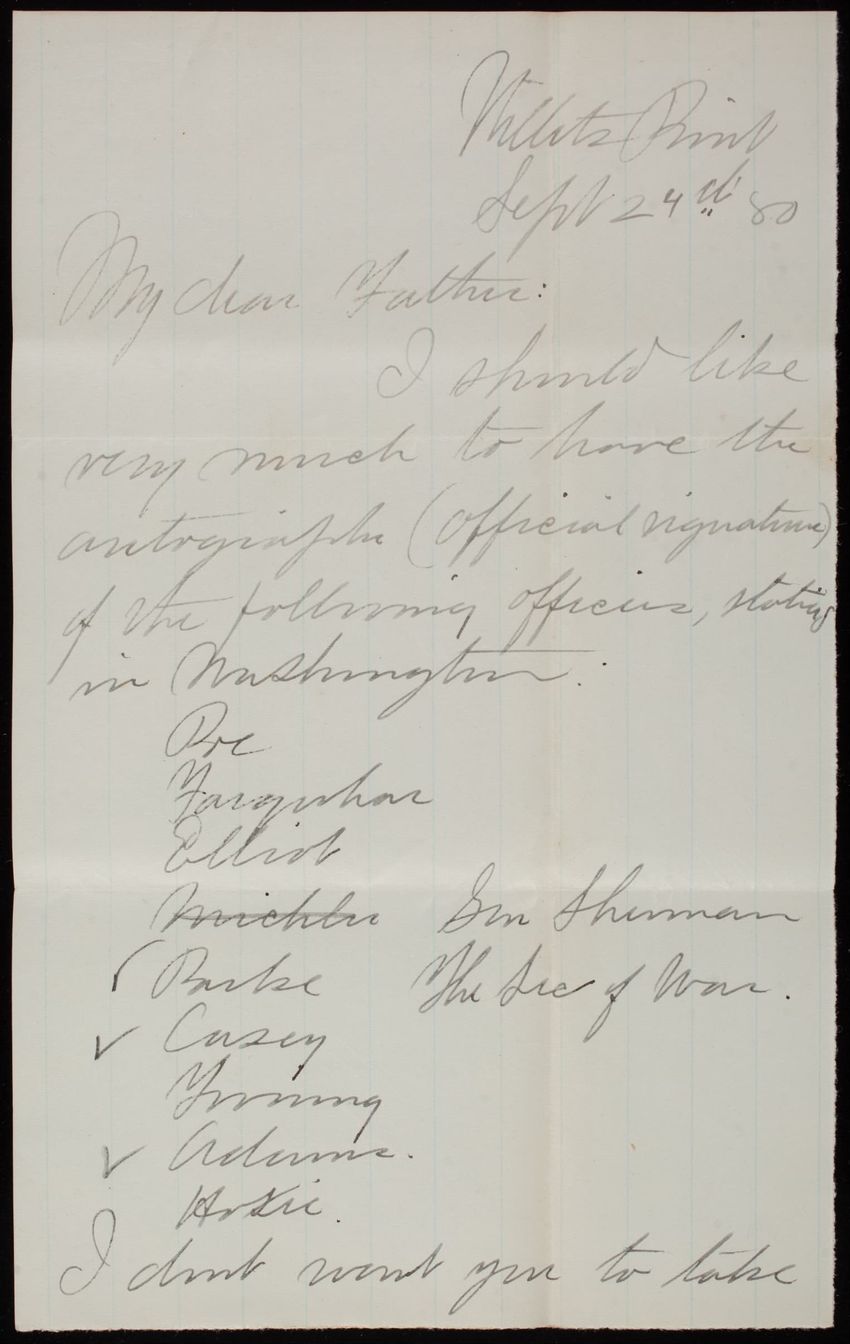 Willets Point
Sept 24th 80
My dear Father:
I should like
very much to have the
autographs (official signature)
of the following officers, station
in Washington:
Poe
Farquhar
Elliot
Michler Gen Sherman
Parke The Sec of War.
✓ Casey
✓ Adams.
Hoxie.
I dont want you to take